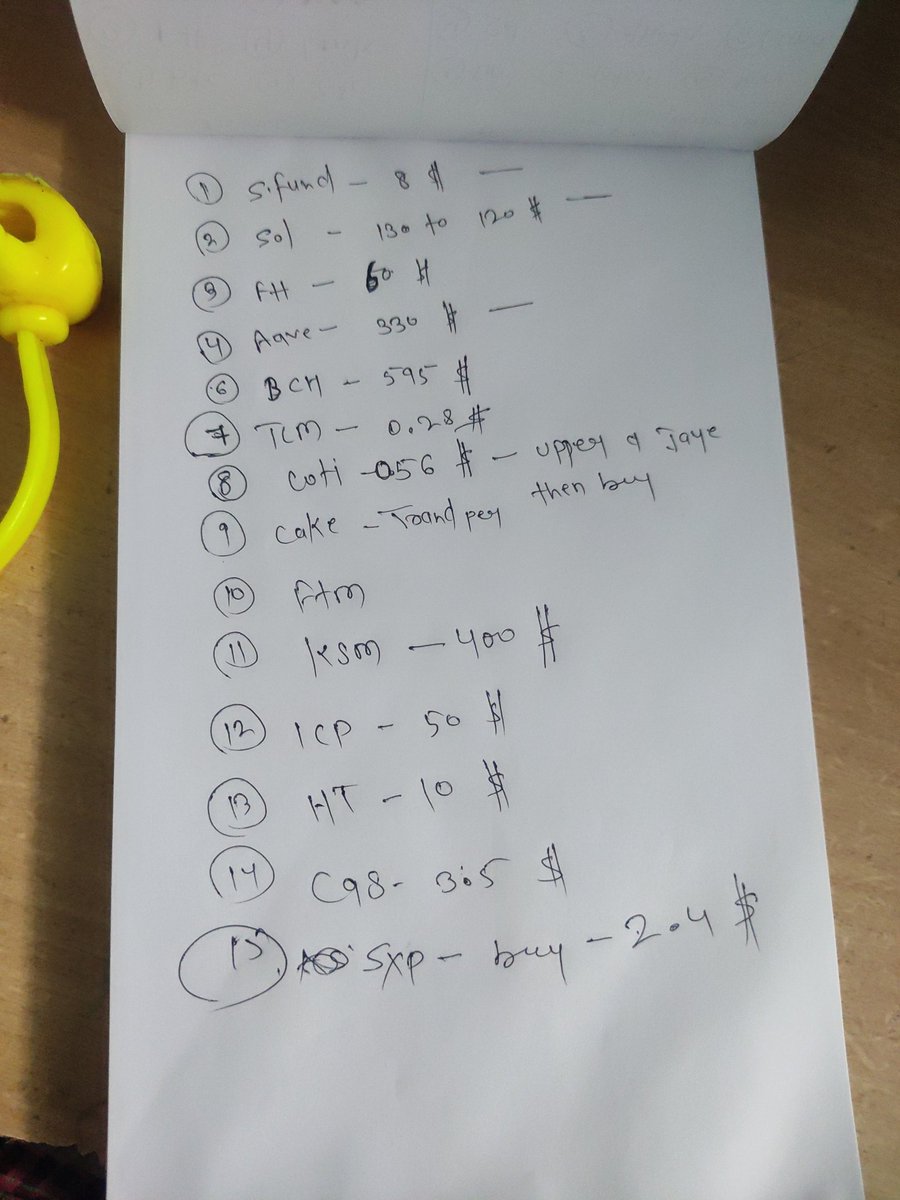 ① S.fund - 8 $ —
② Sol - 130 to 120 $ —
③ - 60 $
④ Aave - 330 $ —
⑥ BCH - 595 $
⑦ TLM - 0.28 $
⑧ Coti - 056 $ - upper Jaye
then buy
⑨ Cake - per
⑩ Ftm
⑪ KSM - 400 $
⑫ ICP - 50 $
⑬ HT - 10 $
⑭ C98 - 3.5 $
⑮ SXP - buy - 2.4 $